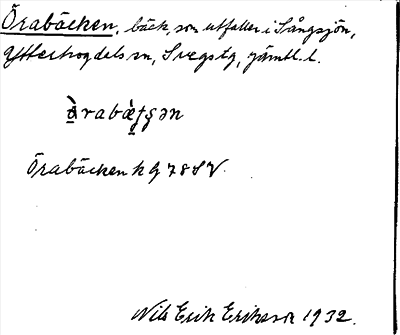 Örabäcken, bäck, som utfaller i Sångsjön,
Ytterhogdals sn, Svegs tg, Jämtl. l.
Örabäcken k G 78 SV.
Nils Erik Erikson 1932.